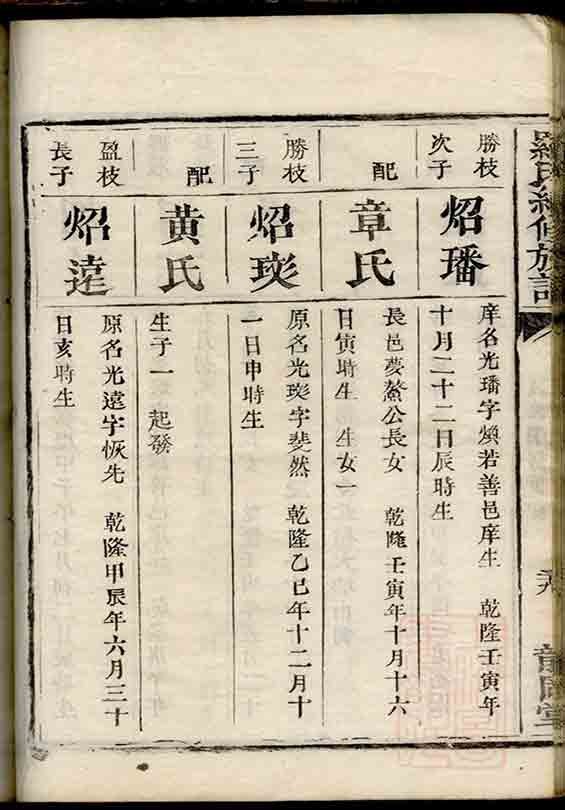 勝枝
次子
炤璠
庠名光璠字煥若善邑庠生 乾隆壬寅年
十月二十二日辰時生
配
章氏
長邑夢鰲公長女 乾隆壬寅年十月十六
日寅時生 生女一
勝枝
三子
炤琰
原名光琰字斐然 乾隆乙巳年十二月十
一日申時生
配
黄氏
生子一 起發
盈枝
長子
炤遠
原名光遠字恢先 乾隆甲辰年六月三十
日亥時生